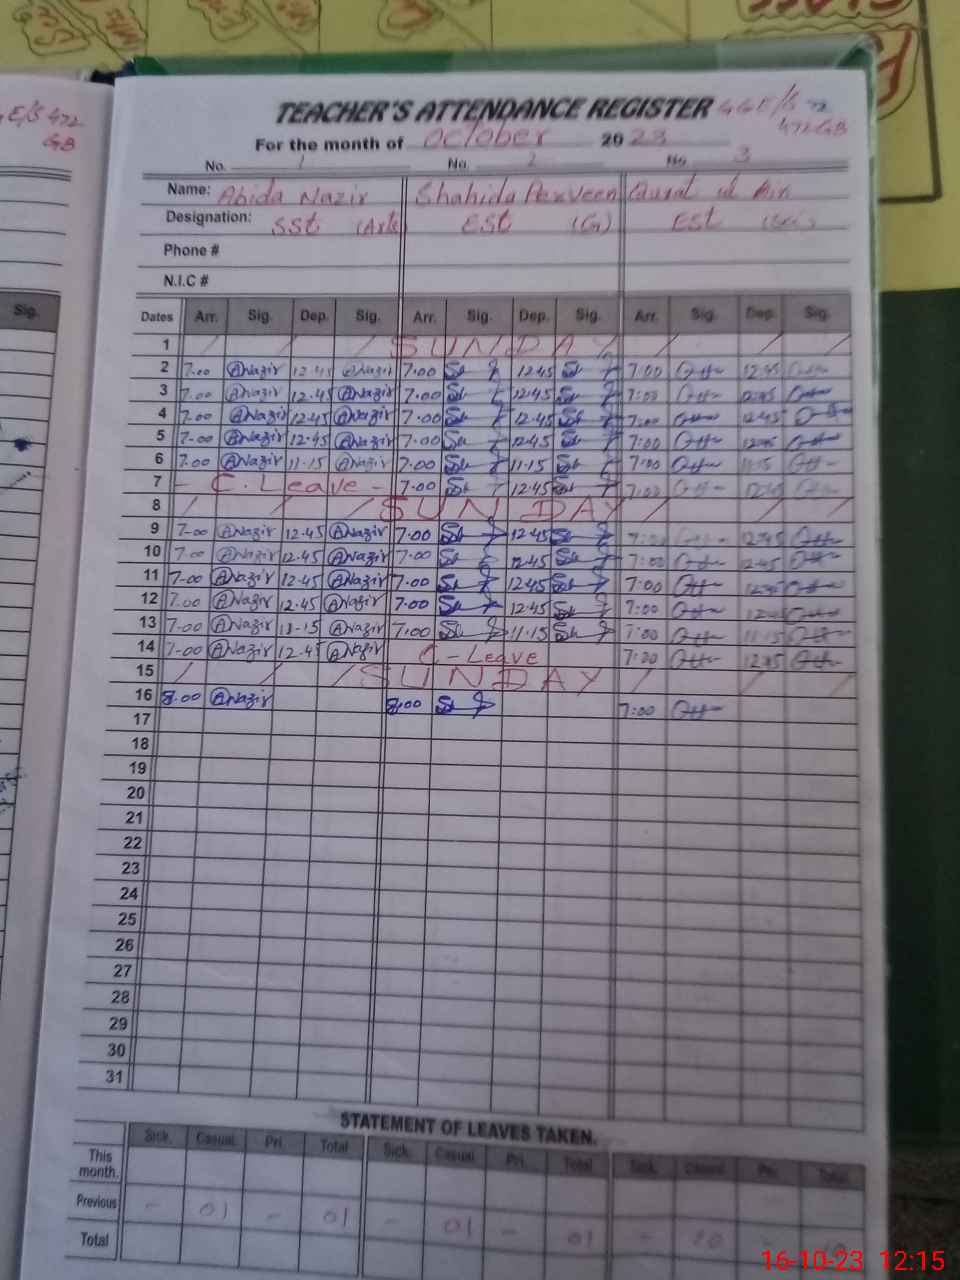 E/S 472
GB
TEACHER'S ATTENDANCE REGISTER GGE/S 72
472GB
For the month of October 20 23
No. 1 No. 2 No. 3
Name: Abida Nazir Shahida Parveen Qurat ul Ain
Designation: SSt (Arts EST (G) EST
Phone #
N.I.C #
Sig.
Dates Arr. Sig. Dep. Sig. Arr. Sig. Dep. Sig. Arr. Sig. Dep. Sig.
1 SUNDAY
2 7.00 ANazir 12.45 ANazir 7.00 12.45 7:00 12:45
3 7.00 ANazir 12.45 ANazir 7.00 12.45 7:00 12:45
4 7.00 ANazir 12.45 ANazir 7.00 12.45 7:00 12:45
5 7-00 ANazir 12.45 ANazir 7.00 12.45 7:00 12:45
6 7.00 ANazir 11-15 ANazir 7.00 11-15 7:00 11:15
7 - C. Leave - 7.00 12.45 7:00
8 SUNDAY
9 7-00 ANazir 12.45 ANazir 7.00 12.45 7:00 12:45
10 7.00 ANazir 12.45 ANazir 7.00 12.45 7:00 12:45
11 7-00 ANazir 12.45 ANazir 7.00 12.45 7:00 12:45
12 7.00 ANazir 12.45 ANazir 7.00 12.45 7:00 12:45
13 7-00 ANazir 11-15 ANazir 7.00 11.15 7:00 11:15
14 7-00 ANazir 12.45 ANazir C-Leave 7:00 12:45
15 SUNDAY
16 8.00 ANazir 8.00 7:00
17
18
19
20
21
22
23
24
25
26
27
28
29
30
31
STATEMENT OF LEAVES TAKEN.
Sick. Casual. Pri. Total Sick. Casual Pri. Total Sick. Casual Pri. Total
This month.
Previous - 01 - 01 - 01 - 01 - 10 - 10
Total
16-10-23 12:15